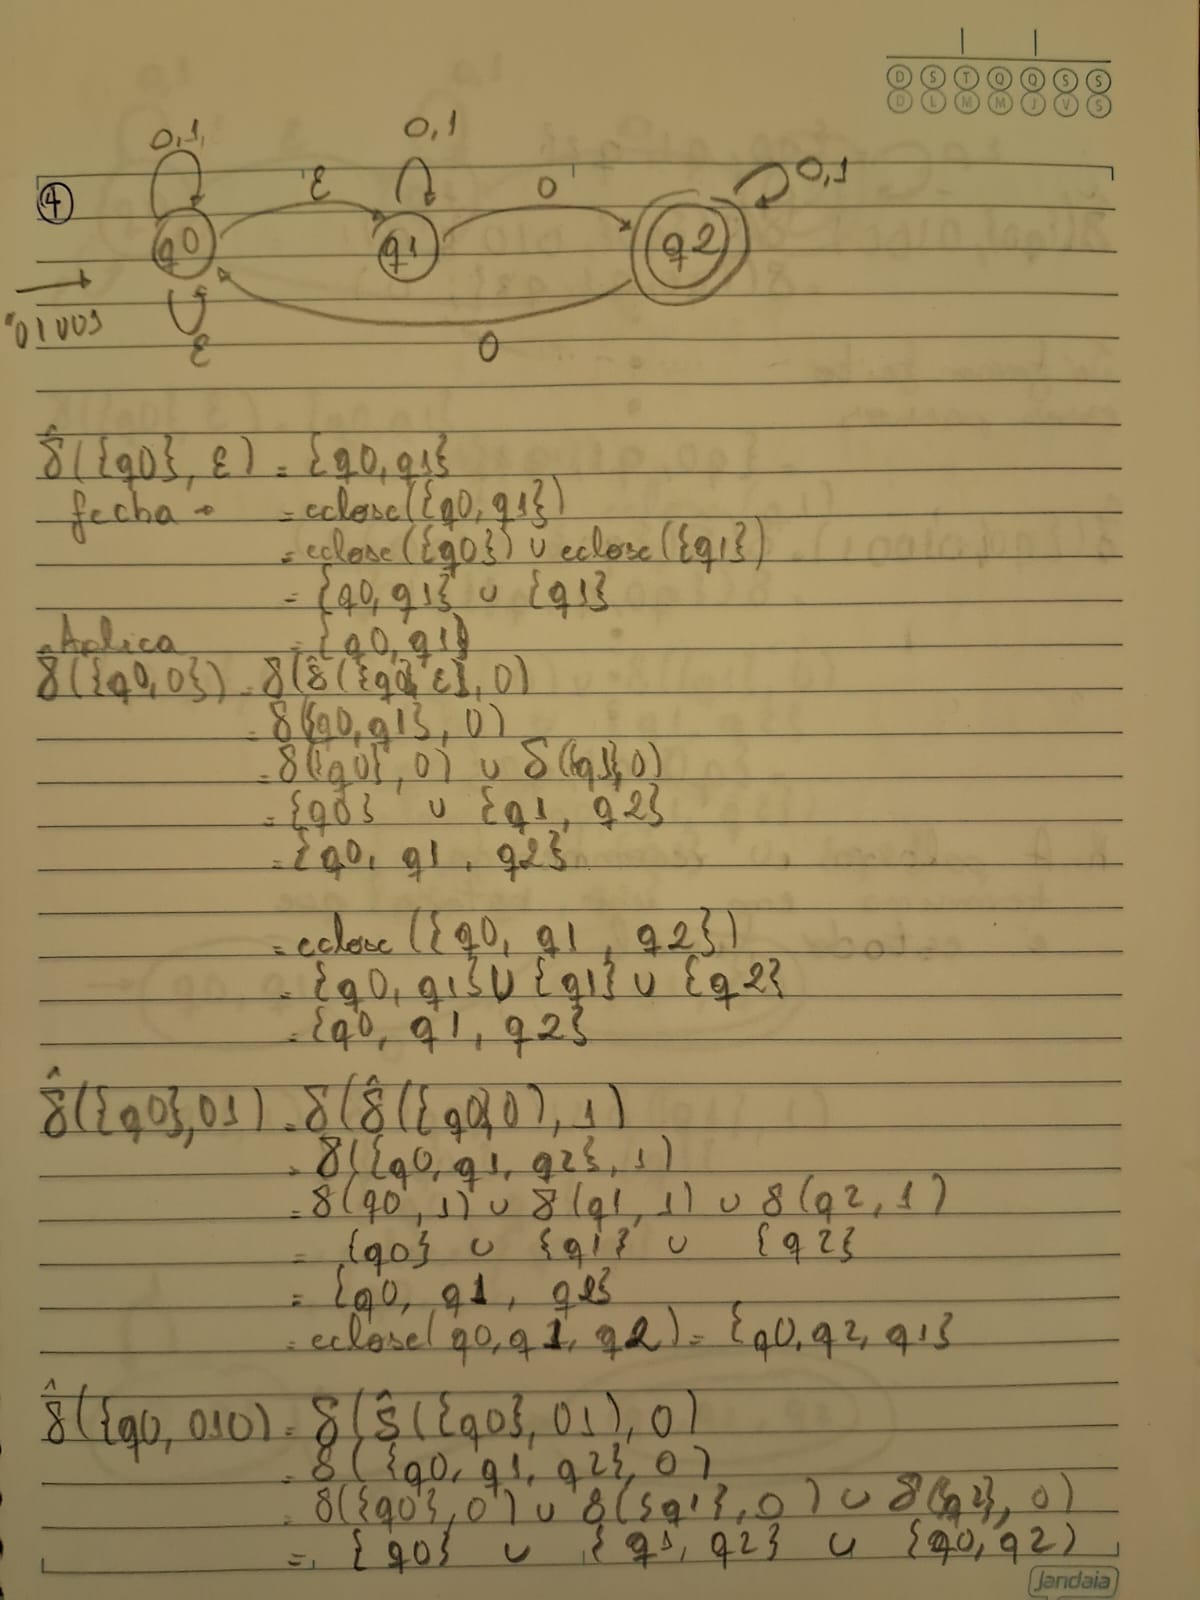 D S T Q Q S S
D L M M J V S
0,1 0,1
④ ε 0 0,1
q0 q1 q2
ε 0
δ̂({q0}, ε) = {q0,q1}
fecha → = eclose({q0,q1})
= eclose({q0}) ∪ eclose({q1})
= {q0,q1} ∪ {q1}
Aplica = {q0,q1}
δ̂({q0,0}) = δ(δ̂({q0}, ε), 0)
= δ({q0,q1}, 0)
= δ({q0}, 0) ∪ δ({q1}, 0)
= {q0} ∪ {q1, q2}
= {q0, q1, q2}
= eclose({q0, q1, q2})
= {q0, q1} ∪ {q1} ∪ {q2}
= {q0, q1, q2}
δ̂({q0},01) = δ(δ̂({q0},0), 1)
= δ({q0, q1, q2}, 1)
= δ(q0, 1) ∪ δ(q1, 1) ∪ δ(q2, 1)
= {q0} ∪ {q1} ∪ {q2}
= {q0, q1, q2}
= eclose(q0, q1, q2) = {q0, q2, q1}
δ̂({q0, 010) = δ(δ̂({q0}, 01), 0)
= δ({q0, q1, q2}, 0)
= δ({q0}, 0) ∪ δ({q1}, 0) ∪ δ({q2}, 0)
= {q0} ∪ {q1, q2} ∪ {q0, q2}
Jandaia